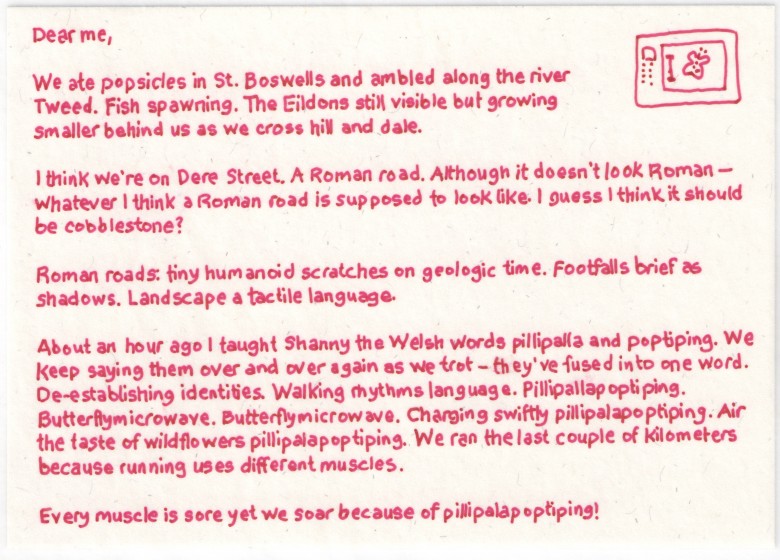 Dear me,
We ate popsicles in St. Boswells and ambled along the river
Tweed. Fish spawning. The Eildons still visible but growing
smaller behind us as we cross hill and dale.
I think we're on Dere Street. A Roman road. Although it doesn't look Roman –
whatever I think a Roman road is supposed to look like. I guess I think it should
be cobblestone?
Roman roads: tiny humanoid scratches on geologic time. Footfalls brief as
shadows. Landscape a tactile language.
About an hour ago I taught Shanny the Welsh words pillipalla and poptiping. We
keep saying them over and over again as we trot – they've fused into one word.
De-establishing identities. Walking rhythms language. Pillipallapoptiping.
Butterflymicrowave. Butterflymicrowave. Charging swiftly pillipalapoptiping. Air
the taste of wildflowers pillipalapoptiping. We ran the last couple of kilometers
because running uses different muscles.
Every muscle is sore yet we soar because of pillipalapoptiping!